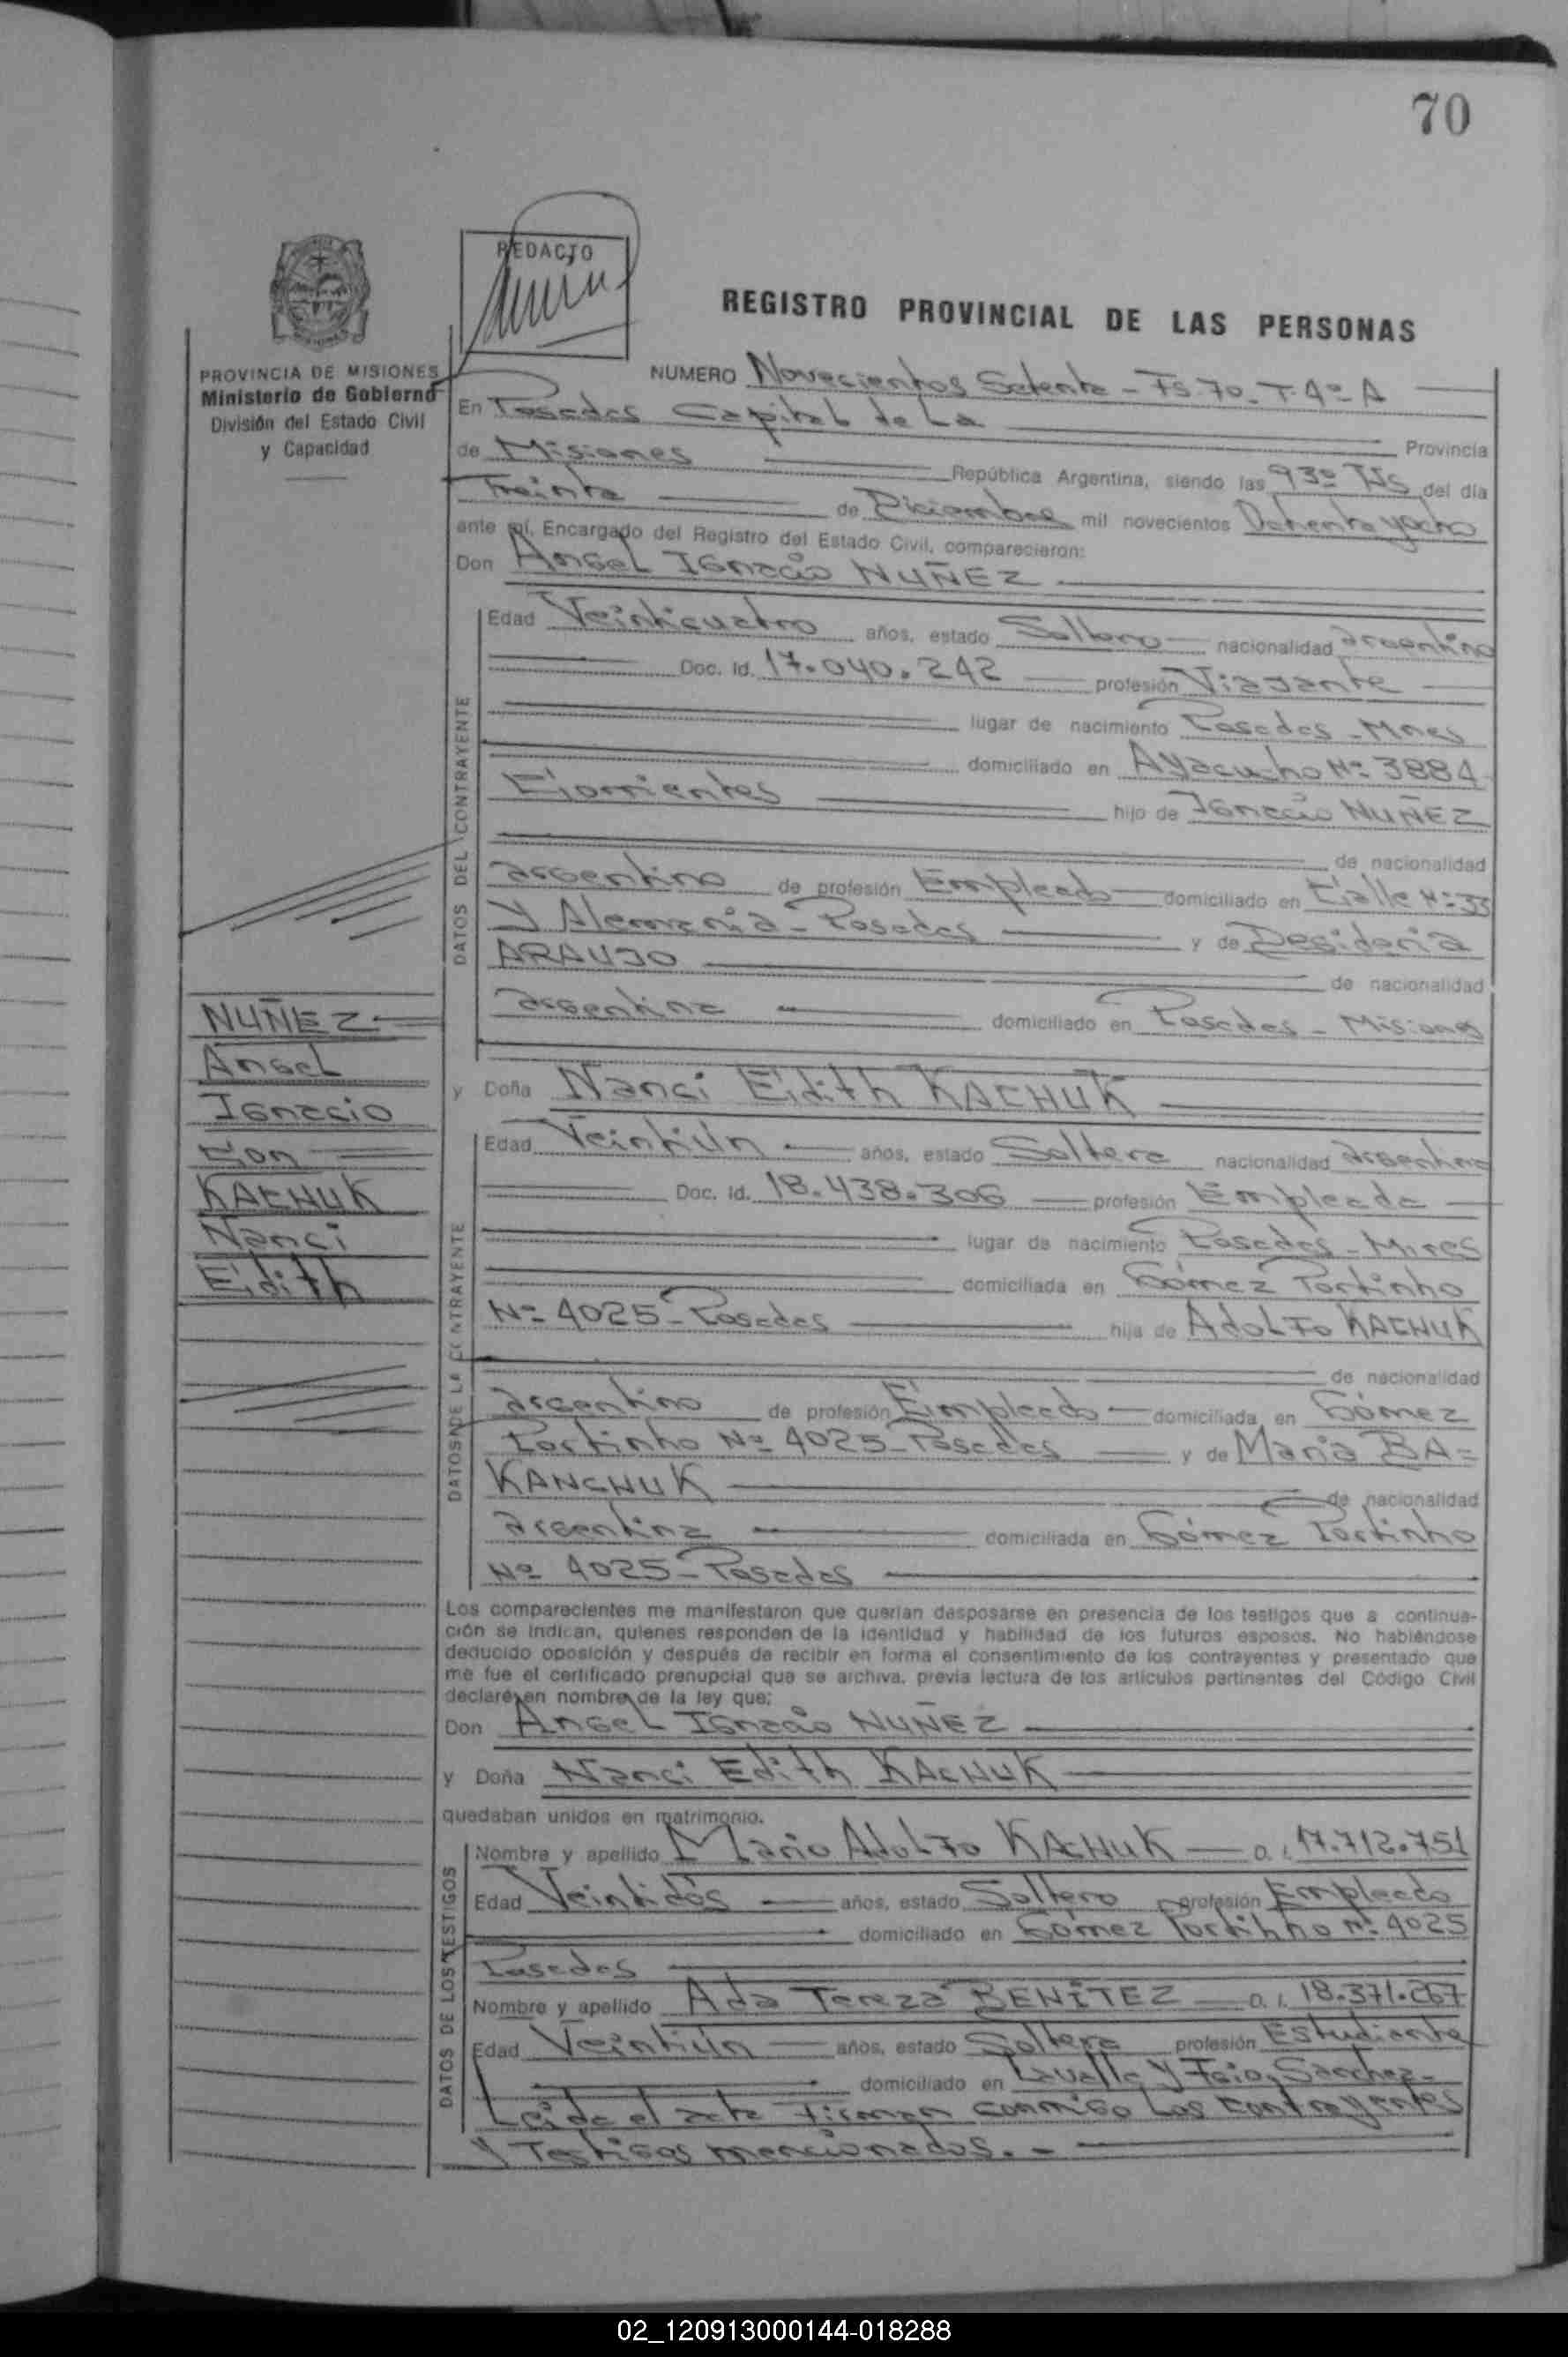 70
REDACTO
REGISTRO PROVINCIAL DE LAS PERSONAS
PROVINCIA DE MISIONES
Ministerio de Gobierno
División del Estado Civil
y Capacidad
NUMERO Novecientos Setenta - Fs. 70 - T. 4º A
En Posadas Capital de La Provincia
de Misiones República Argentina, siendo las 930 Hs del día
Treinta de Diciembre mil novecientos Ochenta y ocho
ante mí, Encargado del Registro del Estado Civil, comparecieron:
Don Angel Ignacio NUÑEZ
DATOS DEL CONTRAYENTE
Edad Veinticuatro años, estado Soltero nacionalidad argentino
Doc. Id. 17.040.242 profesión Viajante
lugar de nacimiento Posadas - Mnes
domiciliado en Ayacucho Nº 3884
Corrientes hijo de Ignacio NUÑEZ
de nacionalidad
argentino de profesión Empleado domiciliado en Calle Nº 33
y Alemania - Posadas y de Desideria
ARAUJO de nacionalidad
argentina domiciliado en Posadas - Misiones
NUÑEZ
Angel
Ignacio
Con
KACHUK
Nanci
Edith
y Doña Nanci Edith KACHUK
DATOS DE LA CONTRAYENTE
Edad Veintiún años, estado Soltera nacionalidad argentina
Doc. Id. 18.438.306 profesión Empleada
lugar de nacimiento Posadas - Mnes
domiciliada en Gómez Portinho
Nº 4025 - Posadas hija de Adolfo KACHUK
de nacionalidad
argentino de profesión Empleado domiciliada en Gómez
Portinho Nº 4025 - Posadas y de Maria BA=
KANCHUK de nacionalidad
argentina domiciliada en Gómez Portinho
Nº 4025 - Posadas
Los comparecientes me manifestaron que querían desposarse en presencia de los testigos que a continua-
ción se indican, quienes responden de la identidad y habilidad de los futuros esposos. No habiéndose
deducido oposición y después de recibir en forma el consentimiento de los contrayentes y presentado que
me fue el certificado prenupcial que se archiva, previa lectura de los artículos pertinentes del Código Civil
declaré en nombre de la ley que:
Don Angel Ignacio NUÑEZ
y Doña Nanci Edith KACHUK
quedaban unidos en matrimonio.
DATOS DE LOS TESTIGOS
Nombre y apellido Mario Adolfo KACHUK D. I. 17.712.751
Edad Veintidós años, estado Soltero profesión Empleado
domiciliado en Gómez Portinho Nº 4025
Posadas
Nombre y apellido Ada Tereza BENÍTEZ D. I. 18.371.267
Edad Veintiún años, estado Soltera profesión Estudiante
domiciliado en Lavalle y Fcio. Sanchez -
Leída el acta firman conmigo los contrayentes
y Testigos mencionados. -
02_120913000144-018288